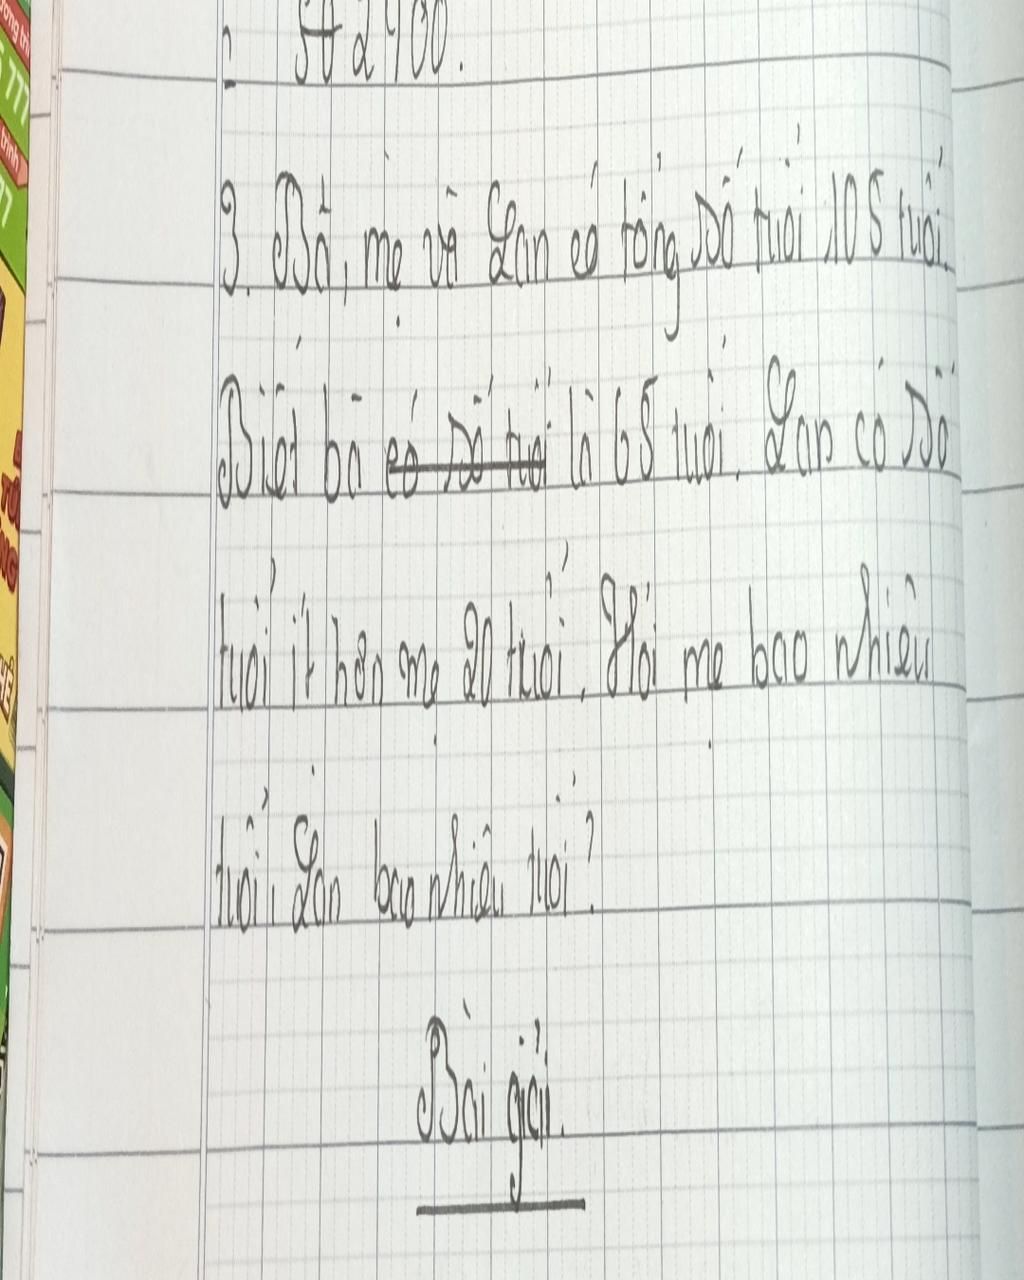 2400.
3. Bà, mẹ và Lan có tổng số tuổi 105 tuổi.
Biết bà có số tuổi là 65 tuổi. Lan có số
tuổi ít hơn mẹ 20 tuổi. Hỏi mẹ bao nhiêu
tuổi, Lan bao nhiêu tuổi?
Bài giải.